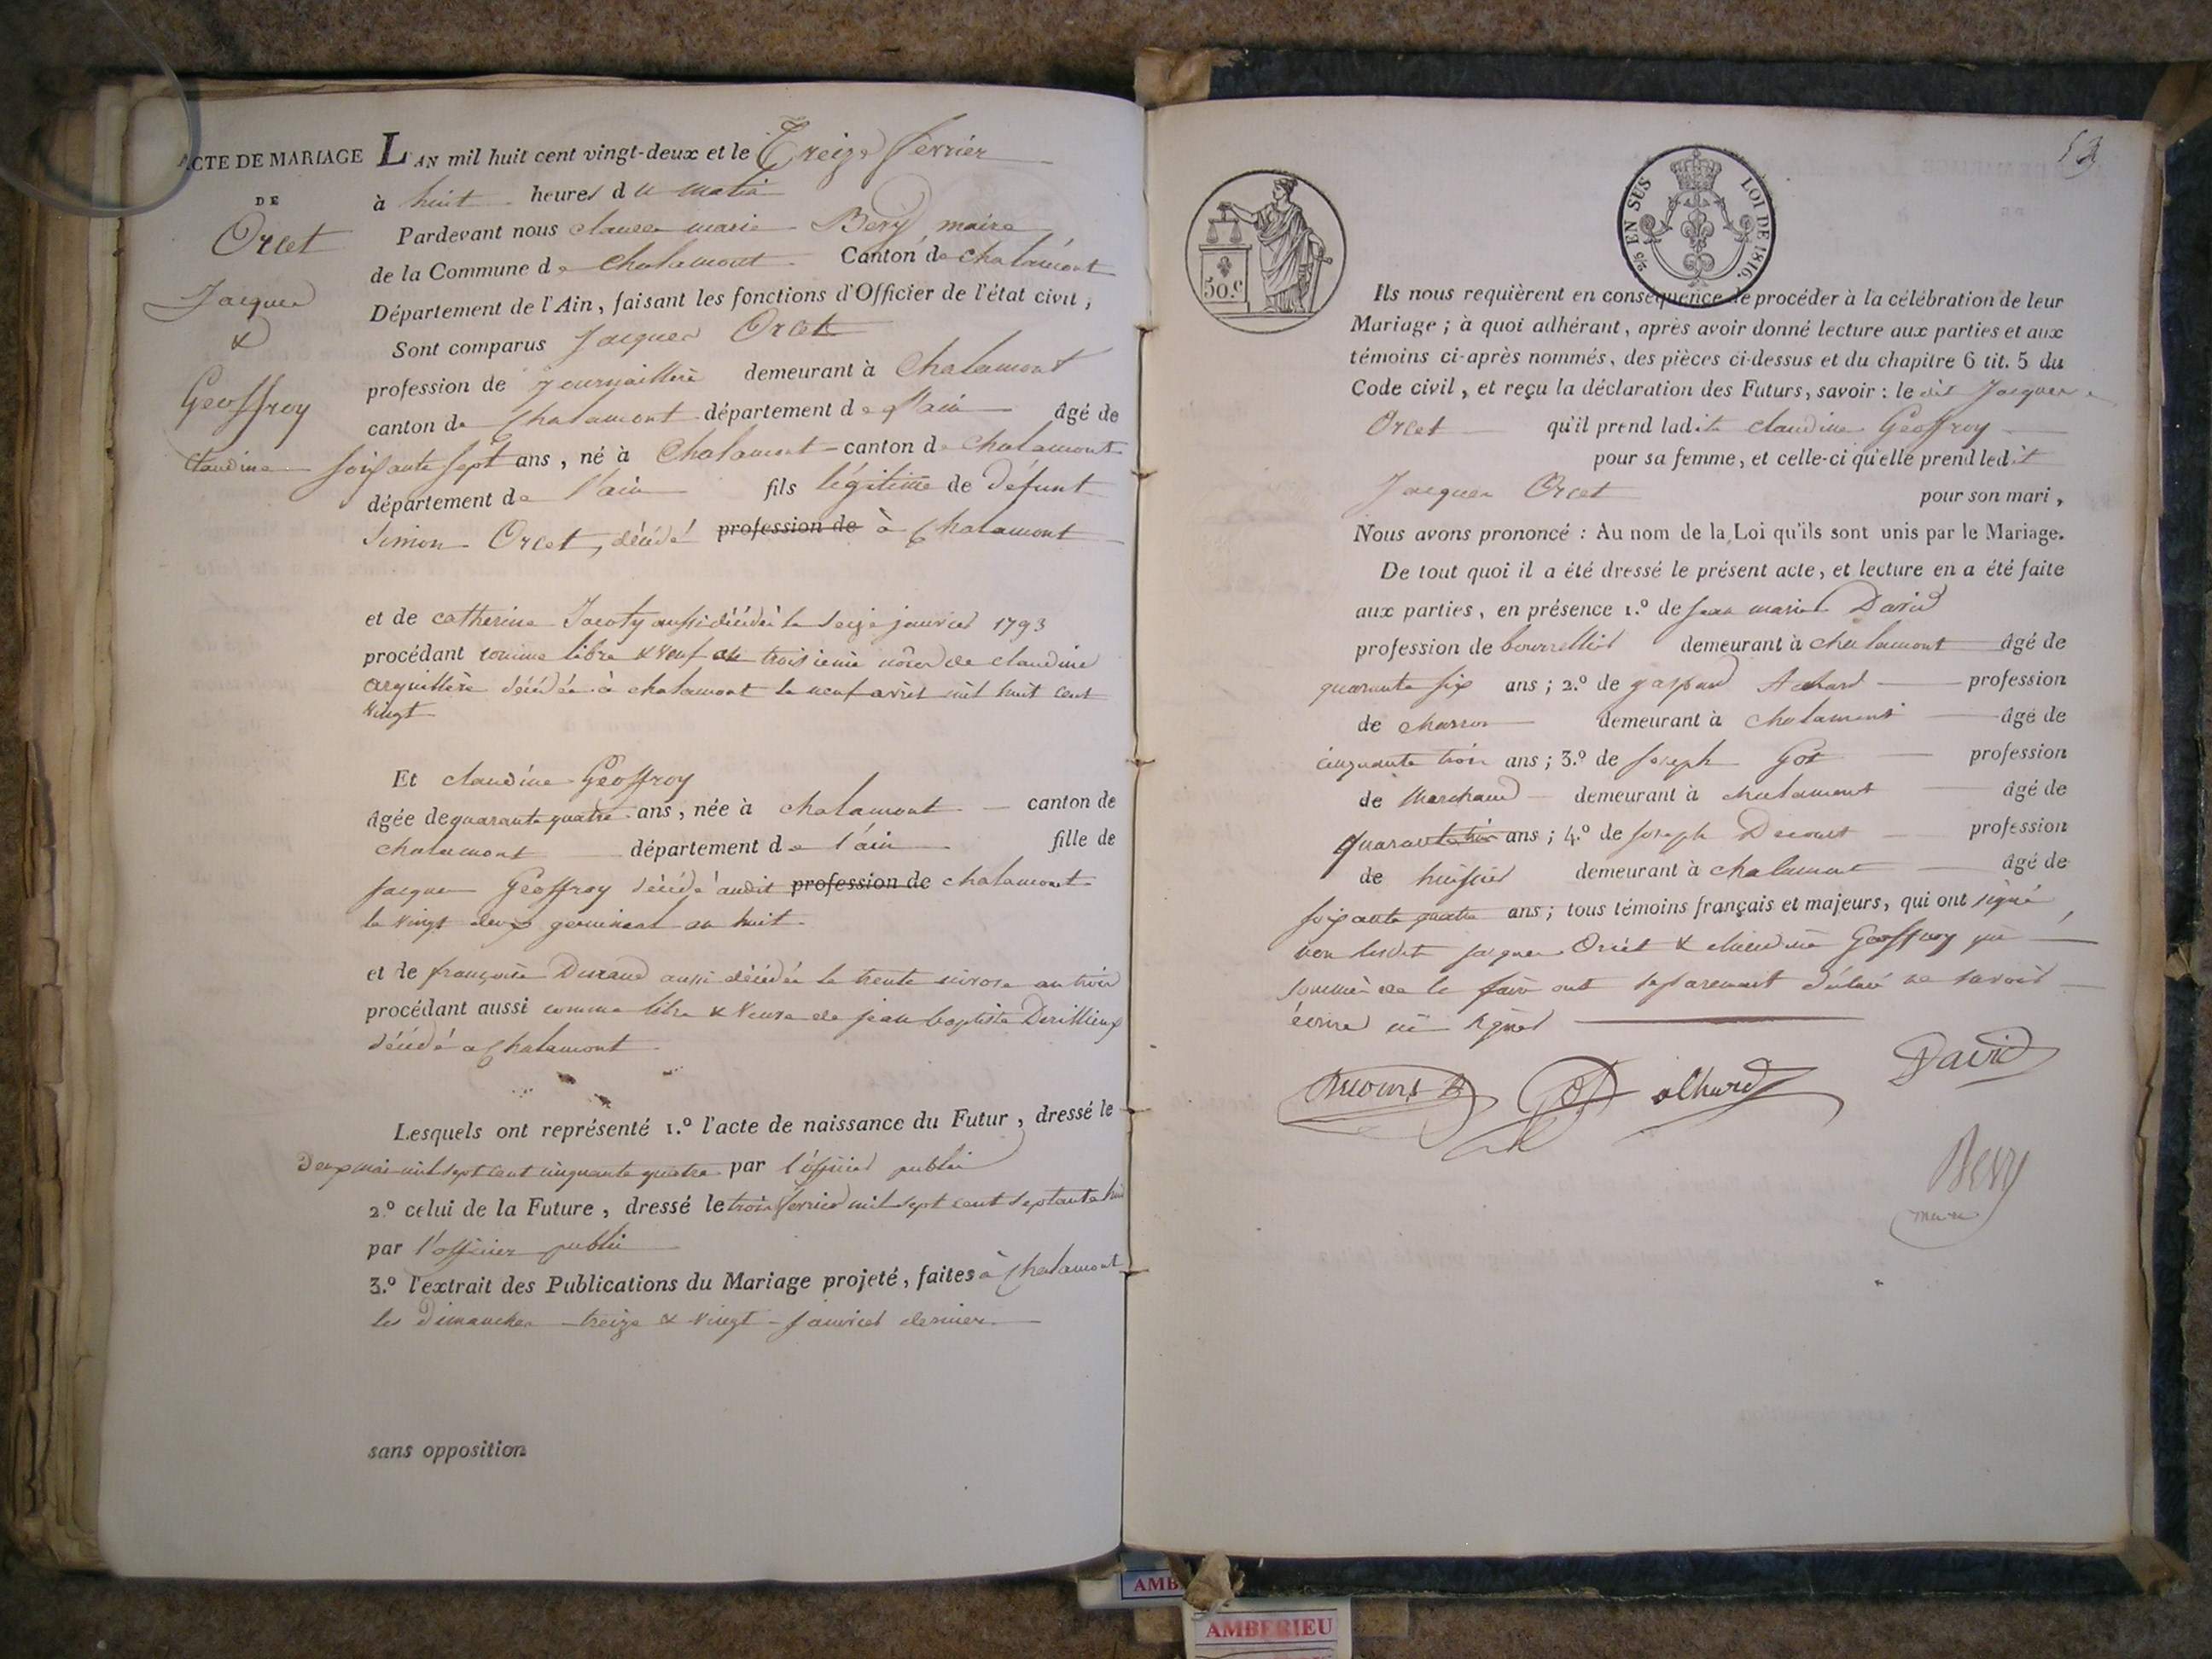 ACTE DE MARIAGE
DE
Orcet
Jacques
&
Geoffroy
Claudine
L'AN mil huit cent vingt-deux et le Treize fevrier
à huit heures du matin
Pardevant nous claude marie Bevy, maire
de la Commune de chalamont Canton de chalamont
Département de l'Ain, faisant les fonctions d'Officier de l'état civil,
Sont comparus Jacques Orcet
profession de journaillere demeurant à Chalamont
canton de Chalamont département de l'ain âgé de
soixante sept ans, né à Chalamont canton de chalamont
département de l'ain fils légitime de défunt
Simon Orcet, décédé profession de à Chalamont
et de catherine Jacoty aussi décédée le seize janvier 1793
procédant comme libre & veuf en troisieme nôces de claudine
arguillère décédée à chalamont le neuf avril mil huit cent
vingt
Et claudine Geoffroy
âgée de quarante quatre ans, née à chalamont canton de
chalamont département de l'ain fille de
jacques Geoffroy décédé audit profession de chalamont
le vingt deux germinal an huit
et de françoise Durand aussi décédée le trente nivose an trois
procédant aussi comme libre & veuve de jean baptiste Derillieux
décédé a Chalamont
Lesquels ont représenté 1.º l'acte de naissance du Futur, dressé le
Deux mai mil sept cent cinquante quatre par l'officier public
2.º celui de la Future, dressé le trois fevrier mil sept cent septante huit
par l'officier public
3.º l'extrait des Publications du Mariage projeté, faites à Chalamont
les Dimanches treize & vingt janvier dernier
sans opposition
53
50.c
2/5 EN SUS LOI DE 1816.
Ils nous requièrent en conséquence de procéder à la célébration de leur
Mariage; à quoi adhérant, après avoir donné lecture aux parties et aux
témoins ci-après nommés, des pièces ci-dessus et du chapitre 6 tit. 5 du
Code civil, et reçu la déclaration des Futurs, savoir: le dit Jacques
Orcet qu'il prend ladite claudine Geoffroy
pour sa femme, et celle-ci qu'elle prend ledit
Jacques Orcet pour son mari,
Nous avons prononcé: Au nom de la Loi qu'ils sont unis par le Mariage.
De tout quoi il a été dressé le présent acte, et lecture en a été faite
aux parties, en présence 1.º de jean marie David
profession de bourrellier demeurant à chalamont âgé de
quarante six ans; 2.º de gaspard Achard profession
de charron demeurant à chalamont âgé de
cinquante trois ans; 3.º de joseph Got profession
de Marchand demeurant à chalamont âgé de
quarante trois ans; 4.º de joseph Decours profession
de huissier demeurant à chalamont âgé de
soixante quatre ans; tous témoins français et majeurs, qui ont signé,
non lesdits jacques Orcet & claudine Geoffroy qui
sommés de le faire ont separement déclaré ne savoir
écrire ni signer
Decours Got achard David
Bevy
maire
AMB
AMBERIEU